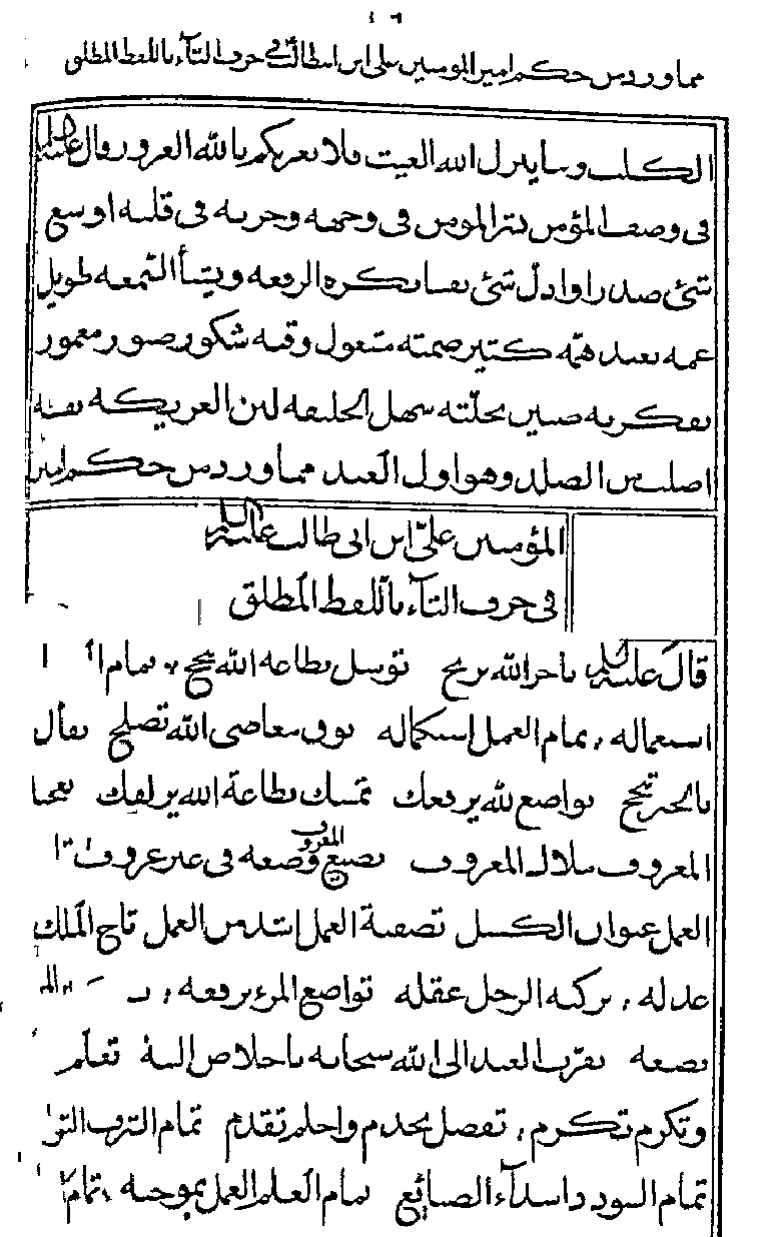 مما ورد من حكم امير المومنين علي ابن ابيطالب في حرف التآء باللفظ المطلق
الكلب وساينزل الله الغيث فلا يغرنكم بالله الغرور وقال عليه السلم
في وصف المؤمن بشر المومن في وجهه وحزنه في قلبه اوسع
شئ صدرا واذل شئ نفسا يكره الرفعه ويشنأ السمعه طويل
غمه بعيد همّه كثير صمته مشغول وقته شكور صبور مغمور
بفكرته ضنين بخلّته سهل الخليقه لين العريكه نفسه
اصلب من الصلد وهو اول العبد مما ورد من حكم امير
المؤمنين عليّ ابن ابي طالب عليه السلم
في حرف التآء باللفظ المطلق
قال عليه السلم تاجر الله تربح توسل بطاعه الله تنجح تمام
استعماله تمام العمل استكماله توق معاصي الله تصلح تفأل
بالخير تنجح تواضع لله يرفعك تمسك بطاعة الله يزلفك
المعروف ملاك المعروف تضييع المعروف وضعه في غير عروف
العمل عنوان الكسل تصفية العمل اشد من العمل تاج الملك
عدله تزكيه الرجل عقله تواضع المرء يرفعه
يضعه تقرّب العبد الى الله سبحانه باخلاص النية تعلّم
وتكرم تكرم تفضل تخدم واحلم تقدم تمام الشرف
تمام السودد اسدآء الصنائع تمام العلم العمل بموجبه تمام